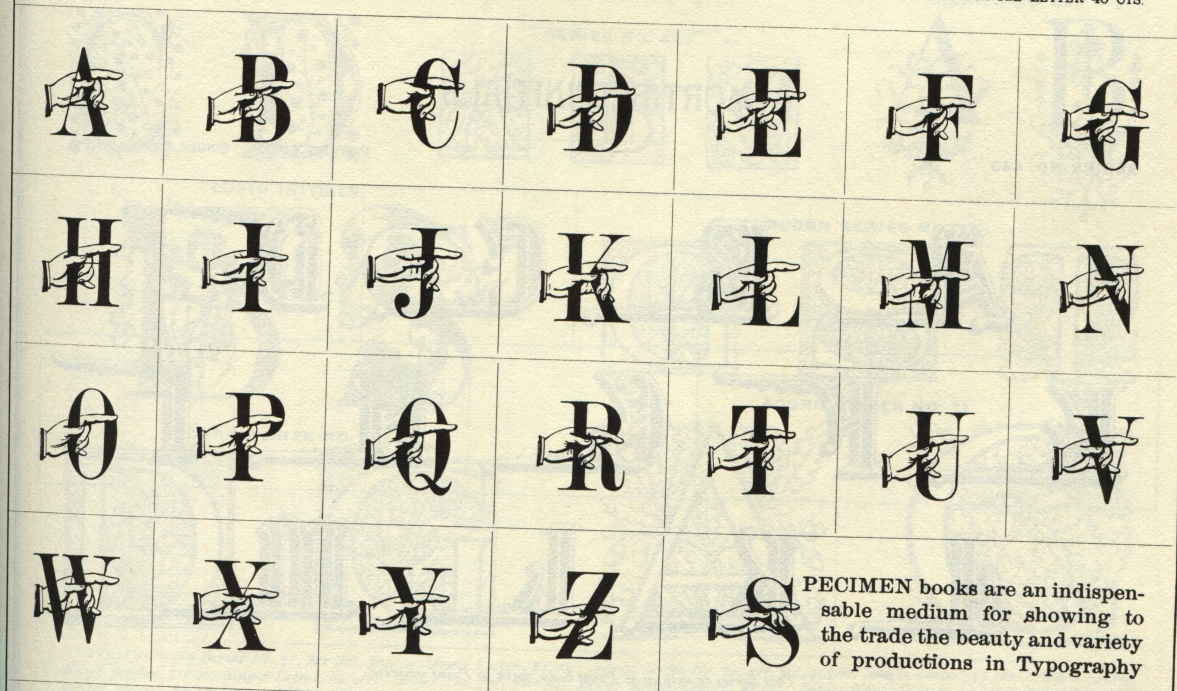 LETTER 40 CTS.
A B C D E F G
H I J K L M N
O P Q R T U V
W X Y Z
SPECIMEN books are an indispen-
sable medium for showing to
the trade the beauty and variety
of productions in Typography